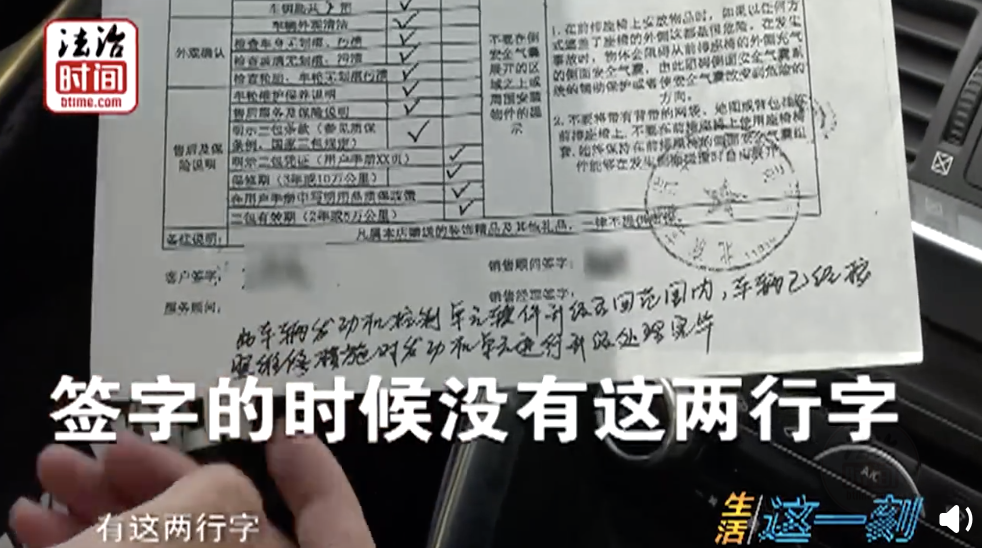 法治
时间
btime.com
车辆外观清洁
外观确认
检查车身无划痕、污渍
检查玻璃无划痕、污渍
检查轮胎、车轮无划痕污渍
车轮维护保养说明
售后服务及保险说明
明示三包条款（参见质保
条例，国家三包规定）
售后及保
险说明
明示三包凭证（用户手册XX页）
保修期（3年或10万公里）
在用户手册中写明用品质保政策
三包有效期（2年或5万公里）
不要在侧
安全气囊
展开的区
域之上或
周围安装
物件的提
示
1.在前排座椅上安放物品时，如果以任何方
式遮盖了座椅的外侧这都是很危险。在发生
事故时，物体会阻碍从前排座椅的外侧充气
的侧面安全气囊，由此阻碍侧面安全气囊系
统的辅助保护或者使安全气囊改变到危险的
方向。
2.不要将带有背带的网袋、地图或背包挂在
前排座椅上，不要在前排座椅上使用座椅椅
套，始终保持在前排座椅的侧面安全气囊组
件能够在发生侧面碰撞时自由展开
备注说明：
凡属本店赠送的装饰精品及其他礼品，一律不提供
客户签字：
销售顾问签字：
服务顾问：
销售经理签字：
车辆发动机控制单元软件升级召回范围内，车辆已经按
照维修措施对发动机单元进行升级处理完毕
签字的时候没有这两行字
有这两行字
A/C
生活
这一刻